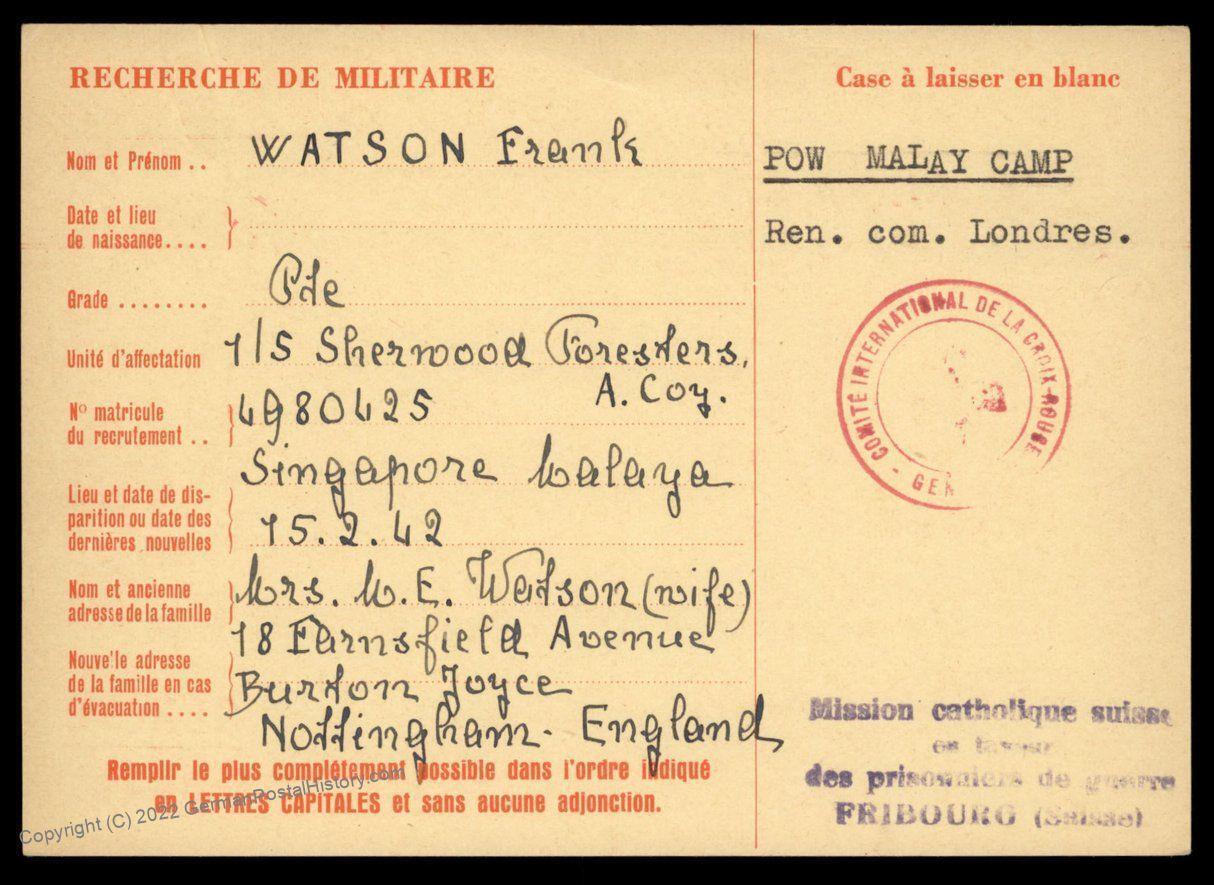 RECHERCHE DE MILITAIRE
Nom et Prénom . . WATSON Frank
Date et lieu
de naissance . . . .
Grade . . . . . . . . Pte
Unité d'affectation 1/5 Sherwood Foresters,
A. Coy.
N° matricule
du recrutement . . 4980425
Singapore Malaya
Lieu et date de dis-
parition ou date des
dernières nouvelles
15.2.42
Nom et ancienne
adresse de la famille
Mrs. M. E. Watson (wife)
18 Farnsfield Avenue
Nouve'le adresse
de la famille en cas
d'évacuation . . . .
Burton Joyce
Nottingham - England
Remplir le plus complètement possible dans l'ordre indiqué
en LETTRES CAPITALES et sans aucune adjonction.
Case à laisser en blanc
POW MALAY CAMP
Ren. com. Londres.
COMITÉ INTERNATIONAL DE LA CROIX-ROUGE - GEN
Mission catholique suisse
en faveur
des prisonniers de guerre
FRIBOURG (Suisse)
Copyright (C) 2022 GermanPostalHistory.com